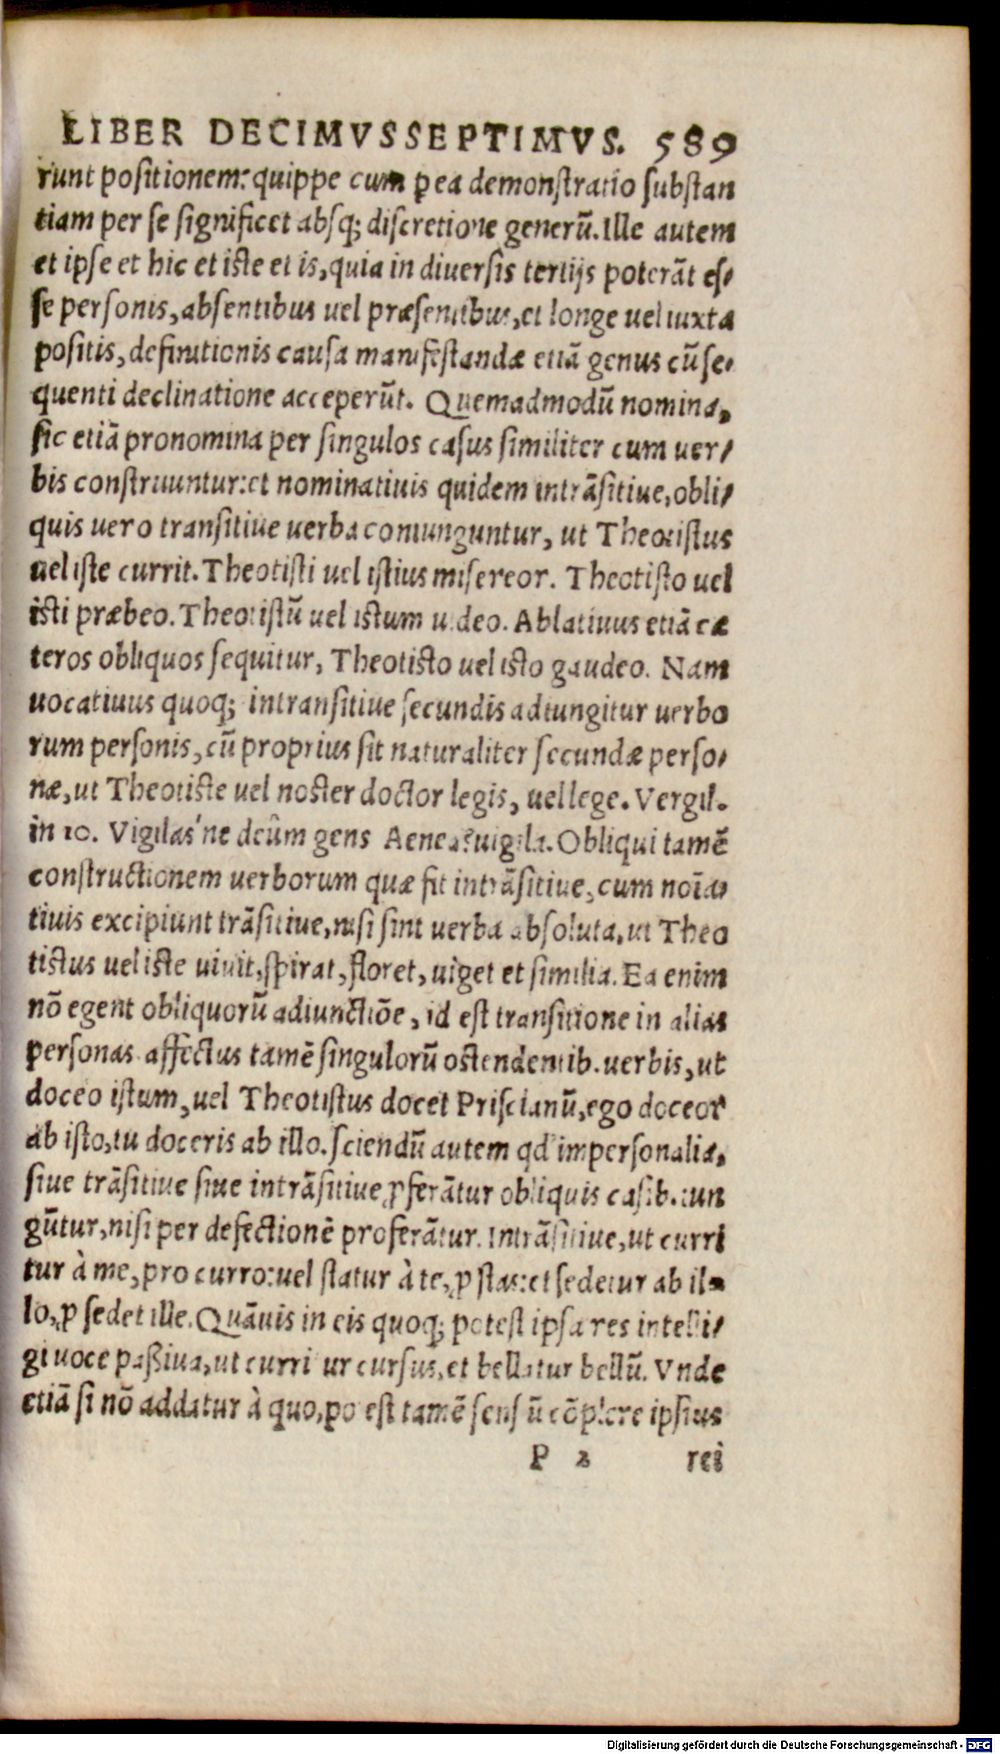 LIBER DECIMVSSEPTIMVS. 589
runt positionem: quippe cum ꝑ ea demonstratio substan
tiam per se significet absq; discretione generū. Ille autem
et ipse et hic et iste et is, quia in diuersis tertijs poterāt es-
se personis, absentibus uel præsentibus, et longe uel iuxta
positis, definitionis causa manifestandæ etiā genus cū se-
quenti declinatione acceperūt. Quemadmodū nomina,
sic etiā pronomina per singulos casus similiter cum uer-
bis construuntur: et nominatiuis quidem intrāsitiue, obli-
quis uero transitiue uerba coniunguntur, ut Theotistus
uel iste currit. Theotisti uel istius misereor. Theotisto uel
isti præbeo. Theotistū uel istum uideo. Ablatiuus etiā cæ
teros obliquos sequitur, Theotisto uel isto gaudeo. Nam
uocatiuus quoq; intransitiue secundis adiungitur uerbo
rum personis, cū proprius sit naturaliter secundæ perso-
næ, ut Theotiste uel noster doctor legis, uel lege. Vergil.
in 10. Vigilas'ne deûm gens Aenea? uigila. Obliqui tamē
constructionem uerborum quæ fit intrāsitiue, cum noīa-
tiuis excipiunt trāsitiue, nisi sint uerba absoluta, ut Theo
tistus uel iste uiuit, spirat, floret, uiget et similia. Ea enim
nō egent obliquorū adiunctiōe, id est transitione in alias
personas affectus tamē singulorū ostendentib. uerbis, ut
doceo istum, uel Theotistus docet Priscianū, ego doceor
ab isto, tu doceris ab illo. Sciendū autem qd' impersonalia,
siue trāsitiue siue intrāsitiue ꝓferātur obliquis casib. iun
gūtur, nisi per defectionē proferātur. Intrāsitiue, ut curri
tur à me, pro curro: uel statur à te, ꝓ stas: et sedetur ab il-
lo, ꝓ sedet ille. Quāuis in eis quoq; potest ipsa res intelli-
gi uoce paßiua, ut curritur cursus, et bellatur bellū. Vnde
etiā si nō addatur à quo, po est tamē sensū cōplere ipsius
P 2 rei
Digitalisierung gefördert durch die Deutsche Forschungsgemeinschaft - DFG